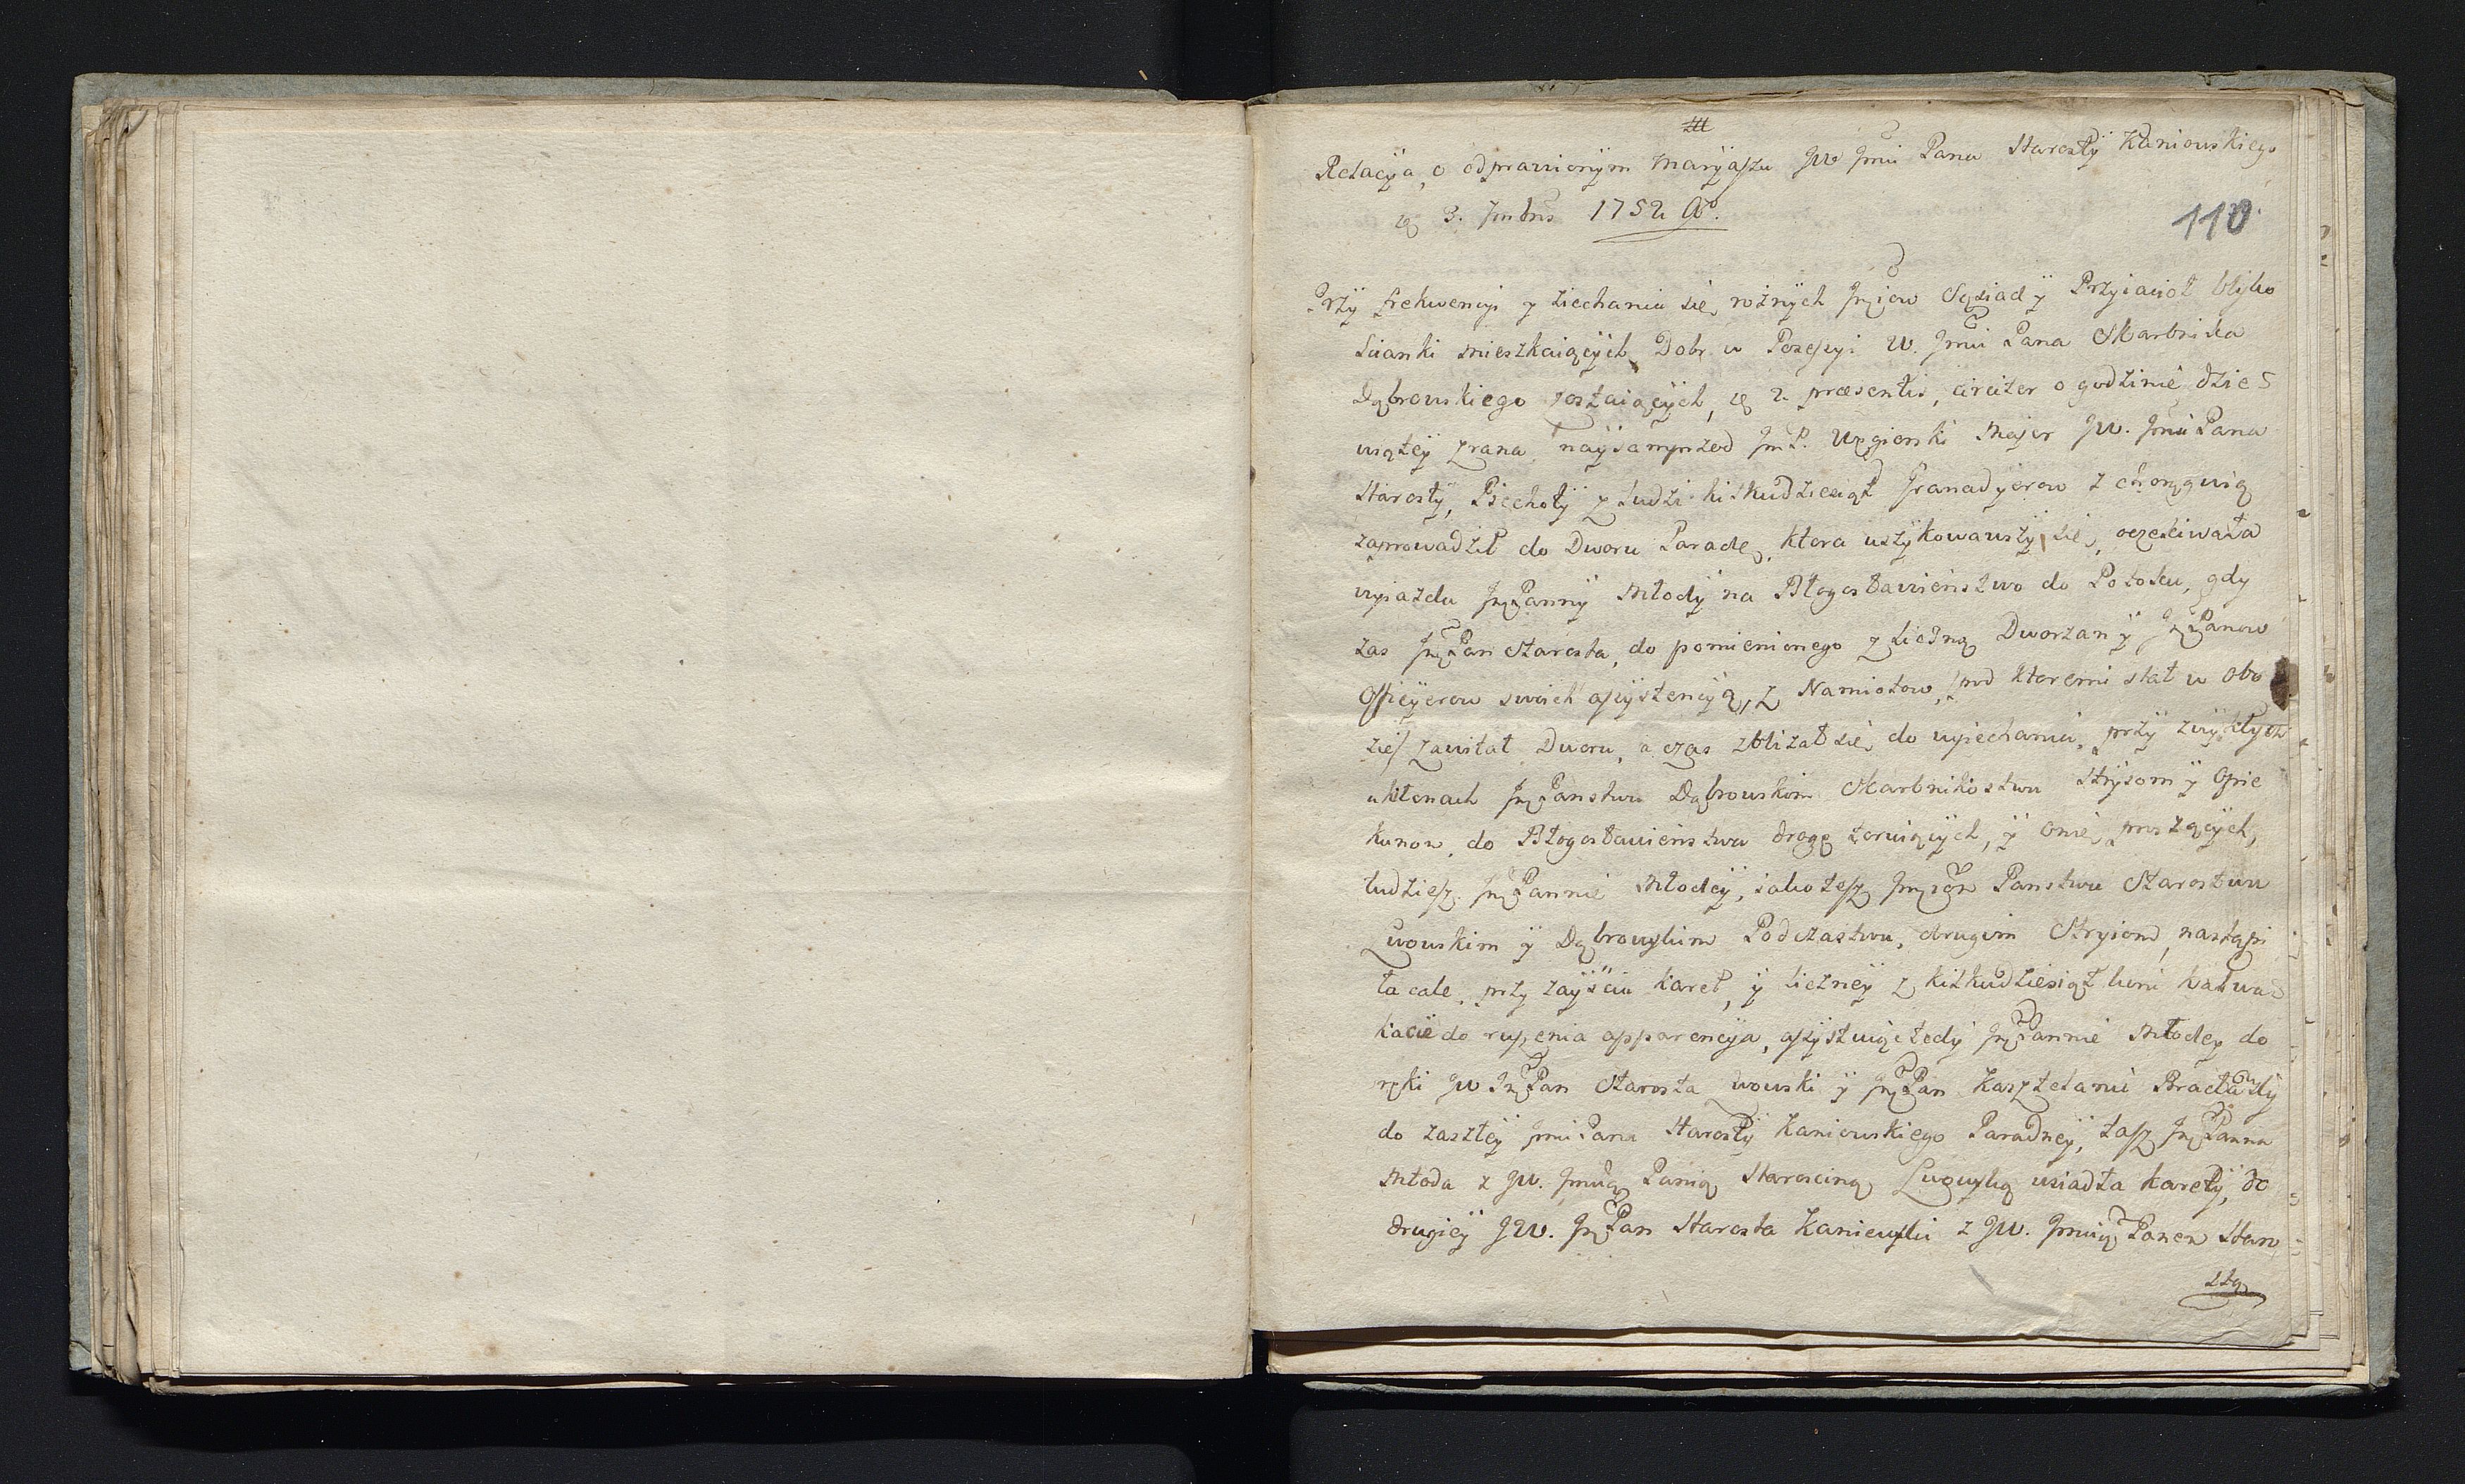 Relacÿa, o odprawionÿm Marÿaszu JW Jmći Pana Starostÿ Kaniowskiego
3. 1752 Aº.
110
Przÿ frekwencÿi y ziechaniu się rożnÿch Sąsiad ÿ Przyiacioł blisko
Scianki mieszkaiącÿch Dobr w Posessyi W. Jmći Pana Skarbnika
Dąbrowskiego zostaiącÿch, 2. præsentis, circiter o godzinie dzie
wiątey zrana, naÿsamprzod JmP. Węgierski Major JW. Jmći Pana
Starostÿ, Piechotÿ y ludzi kilkudziesiąt Granadyerow z chorągwią
zaprowadził do Dworu Paradę, ktora uszÿkowawszÿ się, oczekiwała
wyiazdu Panny Młodÿ na Błogosławieństwo do Potoku, gdy
zas Pan Starosta, do pomienionego z liczną Dworzan ÿ Panow
Officÿerow swoich assystencÿą, z Namiotow, pod ktoremi stał w obo
zie/ zawitał Dworu, a czas zbliżał się do wyiechania, przÿ zwÿkłych
ukłonach Panstwu Dąbrowskim Skarbnikostwu Strÿiom ÿ Opie
kunom, do Błogosławienstwa drogę toruiących, ÿ onie proszącÿch,
tudziesz Pannie Młodeÿ, iako tesz Panstwu Starostwu
Lwowskim ÿ Dąbrowskim Podczastwu, drugim Stryiom, nastąpi
ła cale, przy zayściu karet, ÿ liczneÿ z kilkudziesiąt koni kawa
kacie do ruszenia apparencya, assÿstuiąc tedÿ Pannie Młodey do
ręki JW Pan Starosta Lwowski ÿ Pan Kasztelanic Bracławski
do zaszłeÿ Jmći Pana Starostÿ Kaniowskiego Paradneÿ, tasz Panna
Młoda z JW. Jmcią Panią Starościną Lwowską wsiadła karetÿ, do
drugieÿ JW. Pan Starosta Kaniewski z JW. Jmcią Panem Staro
stą